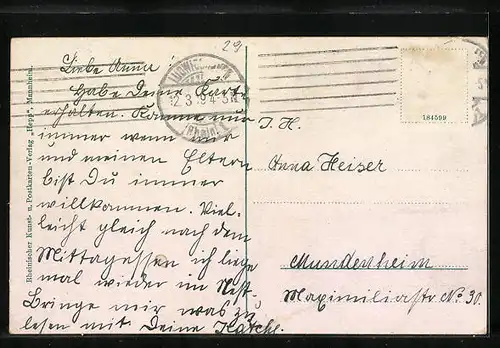 29
Liebe Anna!
Habe Deine Karte
erhalten. Komme nur
immer wenn
und meinen Eltern
bist Du immer
willkommen. Viel-
leicht gleich nach dem
Mittagessen ich liege
mal wieder im Nest
Bringe mir was zu
lesen mit Deine Kätchl.
Rheinischer Kunst- u. Postkarten-Verlag „Hepp“, Mannheim.
(Rhein) 1
184599
Anna Heiser
Mundenheim
Maximiliastr No 30.